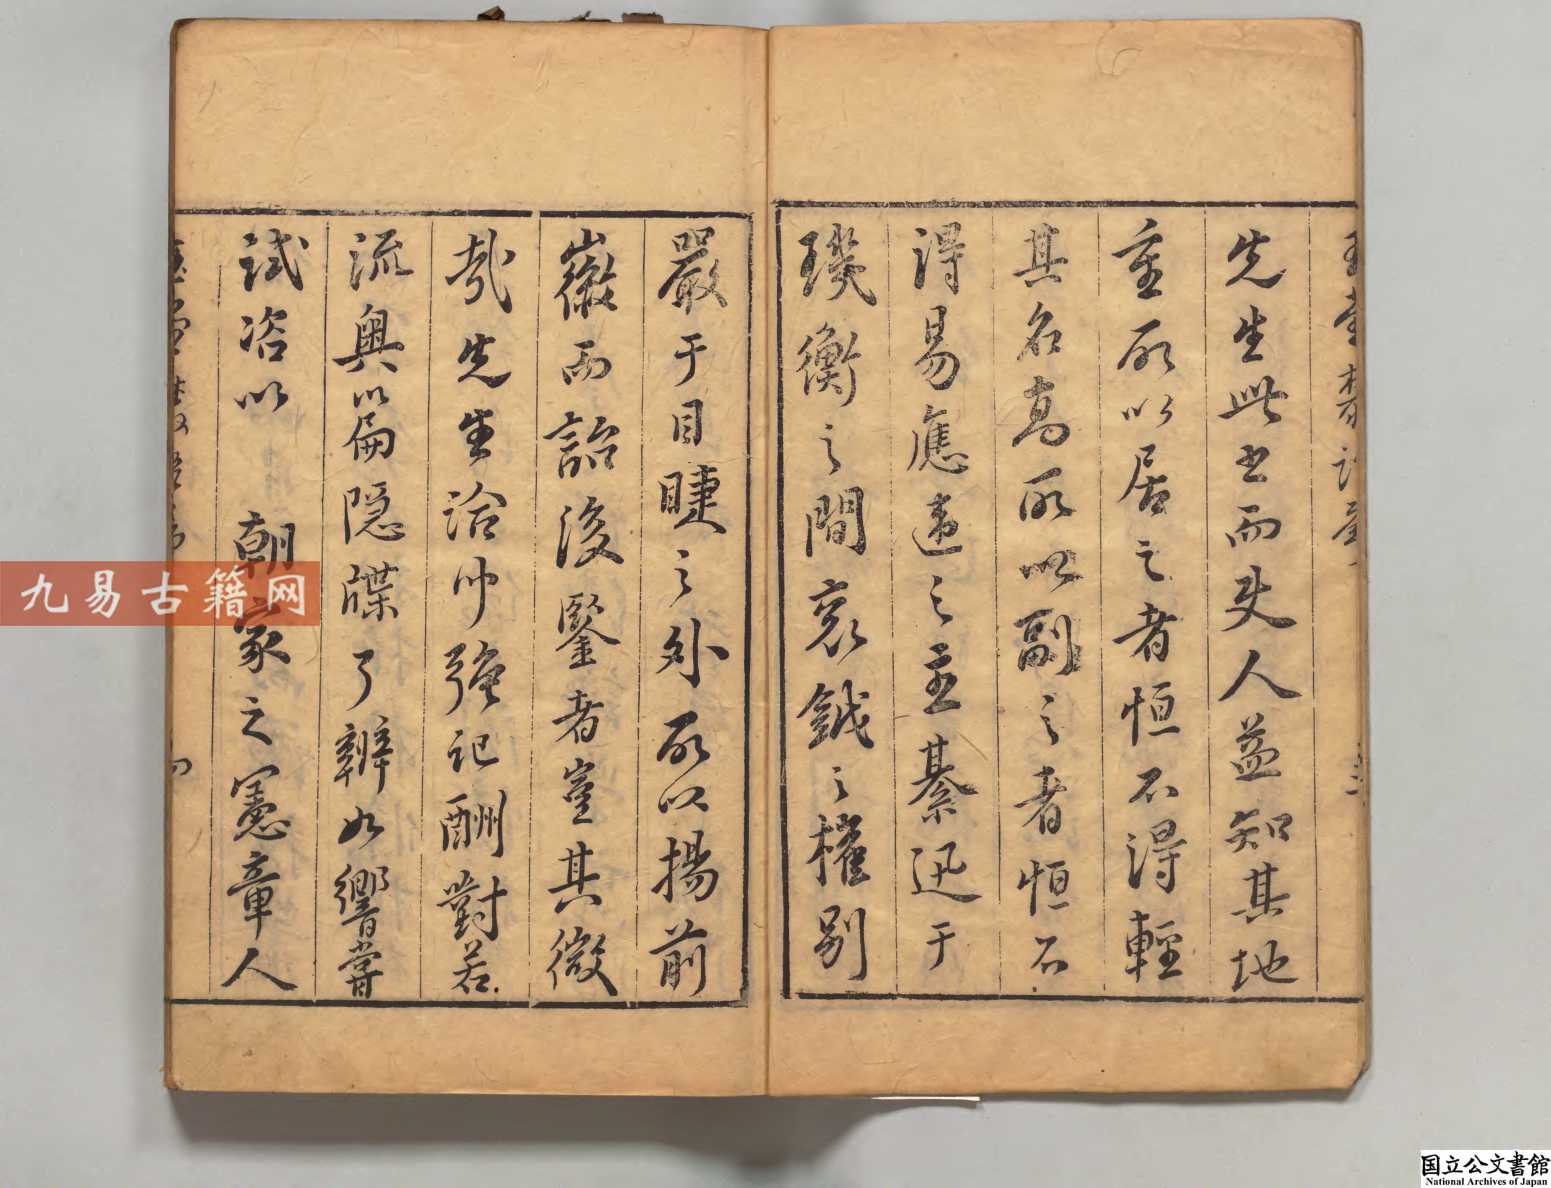 先生此書而史人益知其地
重所以居之者恒不得輕
其名高所以副之者恒不
得易應違之主綦迅于
璣衡之間袞鉞之權別
嚴于目睫之外所以揚前
徽而詔後鑒者豈其微
哉先生洽聞強記酬對若
流奧以篇隱牒了辨如響嘗
試咨以 朝家之憲章人
九易古籍网
国立公文書館
National Archives of Japan